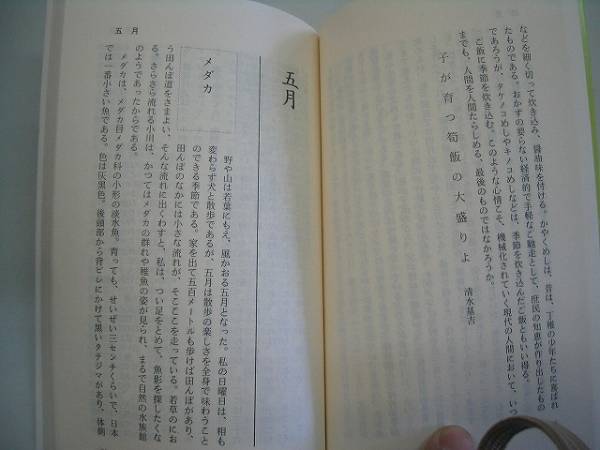 などを細く切って炊き込み、醤油味を付ける。かやくめしは、昔は、丁稚の少年たちに喜ばれ
たものである。おかずの要らない経済的で手軽なご馳走として、庶民の知恵が作り出したもの
であろうが、タケノコめしやキノコめしなどは、季節を炊き込んだご飯ともいい得る。
ご飯に季節を炊き込む。このような心情こそ、機械化されていく現代の人間において、いつ
までも、人間を人間たらしめる、最後のものではなかろうか。
子が育つ筍飯の大盛りよ 清水基吉
五月
五月
メダカ
野や山は若葉にもえ、風かおる五月となった。私の日曜日は、相も
変わらず犬と散歩であるが、五月は散歩の楽しさを全身で味わうこと
のできる季節である。家を出て五百メートルも歩けば田んぼがあり、
田んぼのなかには小さな流れが、そこここを走っている。若草のにお
う田んぼ道をさまよい、そんな流れに出くわすと、私は、つい足をとめて、魚影を探したくな
る。さらさら流れる小川は、かつてはメダカの群れや稚魚の姿が見られ、まるで自然の水族館
のようであったからである。
メダカは、メダカ目メダカ科の小形の淡水魚。育っても、せいぜい三センチくらいで、日本
では一番小さい魚である。色は灰黒色。後頭部から背ビレにかけて黒いタテジマがあり、体側